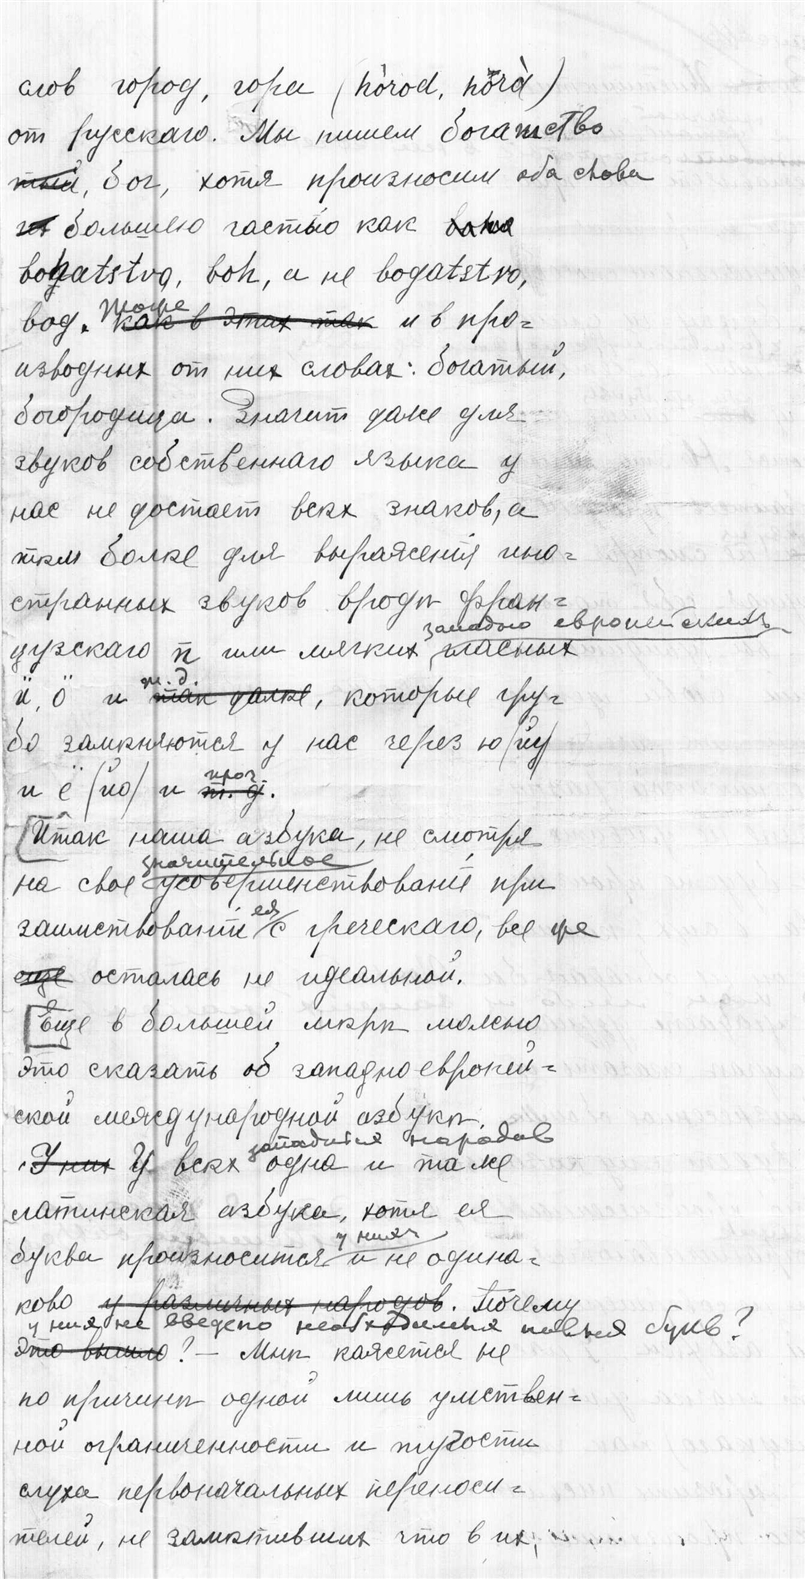 слов город, гора (hòrod, hòrà)
от русскаго. Мы пишем богатство
тый, бог, хотя произносим оба слова
большею частью как
bohatstvo, boh, а не bogatstvo,
bog. Тоже как в этих так и в про=
изводных от них словах: богатый,
богородица. Значит даже для
звуков собственнаго языка у
нас не достает всѣх знаков, а
тѣм болѣе для выражения ино=
странных звуков вродѣ фран=
западно европейских
цузскаго n или мягких гласных
т. д.
ü, ö и так далѣе, которые гру=
бо замѣняются у нас через ю (йу)
проч
и ё (йо) и т. д.
[Итак наша азбука, не смотря
значительное
на свое усовершенствование при
заимствовании ея с греческаго, все же
еще осталась не идеальной.
[Еще в большей мѣрѣ можно
это сказать об западноевропей=
ской международной азбукѣ.
западных народов
У них У всѣх одна и та же
латинская азбука, хотя ея
у них
буква произносится и не одина=
ково у различных народов. Почему
у них не введено необходимых новых букв?
это вышло? — Мнѣ кажется не
по причинѣ одной лишь умствен=
ной ограниченности и тугости
слуха первоначальных переноси=
телей, не замѣтивших что в их